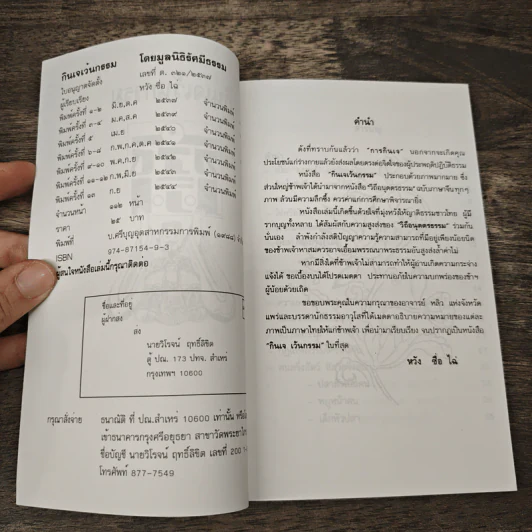 กินเจเว้นกรรม โดยมูลนิธิรัศมีธรรม
ใบอนุญาตจัดตั้ง เลขที่ ต. ๓๒๑/๒๕๓๗
ผู้เรียบเรียง หวัง ซื่อ ไฉ่
พิมพ์ครั้งที่ ๑-๒ มิ.ย,ต.ค ๒๕๓๗ จำนวนพิมพ์
พิมพ์ครั้งที่ ๓-๔ ม.ค,ส.ค ๒๕๓๙ จำนวนพิมพ์
พิมพ์ครั้งที่ ๕ เม.ย ๒๕๔๐ จำนวนพิมพ์
พิมพ์ครั้งที่ ๖-๘ ก.พ,ก.ค,ต.ค ๒๕๔๑ จำนวนพิมพ์
พิมพ์ครั้งที่ ๙-๑๐ พ.ค,ก.ย ๒๕๔๒ จำนวนพิมพ์
พิมพ์ครั้งที่ ๑๑-๑๒ ก.พ,มิ.ย ๒๕๔๓ จำนวนพิมพ์
พิมพ์ครั้งที่ ๑๓ ก.ย ๒๕๔๔ จำนวนพิมพ์
จำนวนหน้า ๑๑๒ หน้า
ราคา ๒๕ บาท
พิมพ์ที่ บ.ศรีบุญอุตสาหกรรมการพิมพ์ (๑๙๘๘) จำกัด
ISBN 974-87154-9-3
ผู้สนใจหนังสือเล่มนี้กรุณาติดต่อ
ชื่อและที่อยู่
ผู้ฝากส่ง
ส่ง
นายวิโรจน์ ฤทธิ์ลิขิต
ตู้ ปณ. 173 ปทจ. สำเหร่
กรุงเทพฯ 10600
กรุณาสั่งจ่าย ธนาณัติ ที่ ปณ.สำเหร่ 10600 เท่านั้น หรือ
เข้าธนาคารกรุงศรีอยุธยา สาขาวัดพระยาไกร
ชื่อบัญชี นายวิโรจน์ ฤทธิ์ลิขิต เลขที่ 200
โทรศัพท์ 877-7549
คำนำ
ดังที่ทราบกันแล้วว่า "การกินเจ" นอกจากจะเกิดคุณ
ประโยชน์แก่ร่างกายแล้วยังส่งผลโดยตรงต่อจิตใจของผู้ประพฤติปฏิบัติธรรม
หนังสือ "กินเจเว้นกรรม" ประกอบด้วยภาพมากมาย ซึ่ง
ส่วนใหญ่ข้าพเจ้าได้นำมาจากหนังสือ "วิถีอนุตตรธรรม" ฉบับภาษาจีนทุกๆ
ภาพ ล้วนมีความลึกซึ้ง ควรค่าแก่การศึกษาพิจารณายิ่ง
หนังสือเล่มนี้เกิดขึ้นด้วยใจที่มุ่งหวังให้ญาติธรรมชาวไทย ผู้มี
รากบุญทั้งหลาย ได้สัมผัสกับความสูงส่งของ "วิถีอนุตตรธรรม" ร่วมกัน
นั่นเอง ลำพังกำลังสติปัญญาความรู้ความสามารถที่มีอยู่เพียงน้อยนิด
ของข้าพเจ้าหาสมควรอาจเอื้อมพรรณนาพระธรรมอันสูงส่งล้ำค่าไม่
หากมีสิ่งใดที่ข้าพเจ้าไม่สามารถทำให้ผู้อ่านเกิดความกระจ่าง
แจ้งได้ ขอเบื้องบนได้โปรดเมตตา ประทานอภัยในความบกพร่องของข้าฯ
ผู้น้อยด้วยเถิด
ขอขอบพระคุณในความกรุณาของอาจารย์ หลิว แห่งจังหวัด
แพร่และบรรดานักธรรมอาวุโสที่ได้เมตตาอธิบายความหมายของแต่ละ
ภาพเป็นภาษาไทยให้แก่ข้าพเจ้า เพื่อนำมาเรียบเรียง จนปรากฏเป็นหนังสือ
"กินเจ เว้นกรรม" ในที่สุด
หวัง ซื่อ ไฉ่